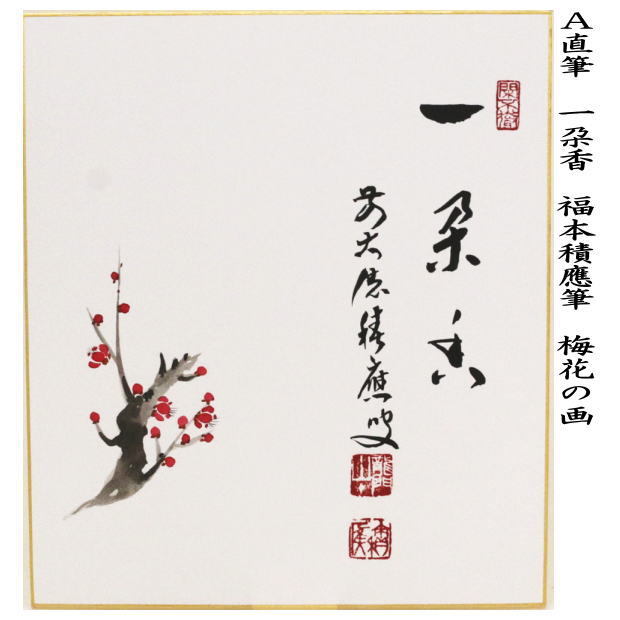 A直筆 一朶香 福本積應筆 梅花の画
一朶香
前大徳積應叟